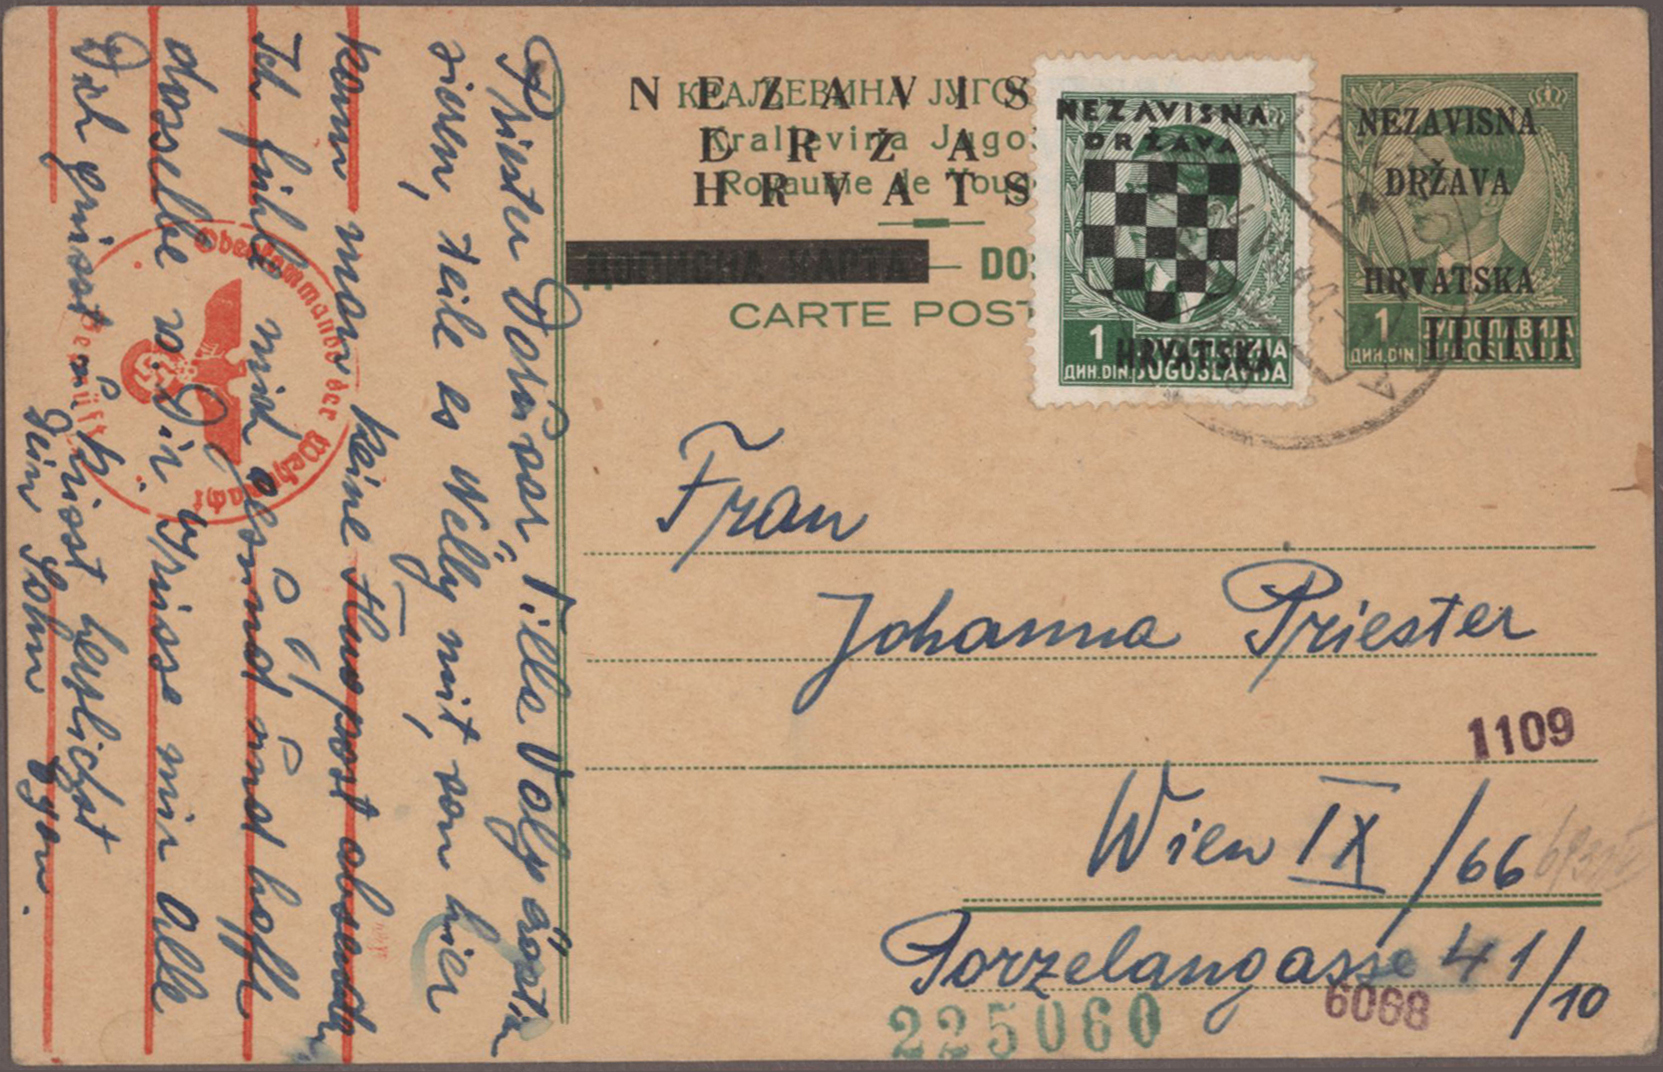 КРАЉЕВИНА ЈУГО
Kraljevina Jugo
Royaume de Youg
NEZAVIS
DRŽA
HRVATS
ДОПИСНА КАРТА — DO
CARTE POST
NEZAVISNA
DRŽAVA
HRVATSKA
1
ДИН. DIN
ЈУГОСЛАВИЈА
JUGOSLAVIJA
NEZAVISNA
DRŽAVA
HRVATSKA
1
ДИН. DIN
ЈУГОСЛАВИЈА
JUGOSLAVIJA
Frau
Johanna Priester
1109
Wien IX /66
Porzelangasse 41/10
6068
225060
Oberkommando der Wehrmacht
Geprüft
Priester
teile es Welly mit, von hier
kann man keine
Ich fühle mich gesund und hoffe
dasselbe v. Dir. Grüsse mir Alle
Dich grüsst u. küsst herzlichst
Dein Sohn Egon.